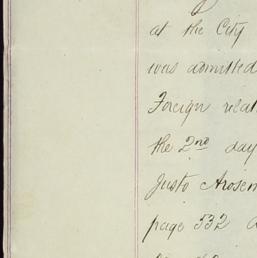 at the City
was admitted
Foreign relat
the 2nd day
Justo Arosem
page 532